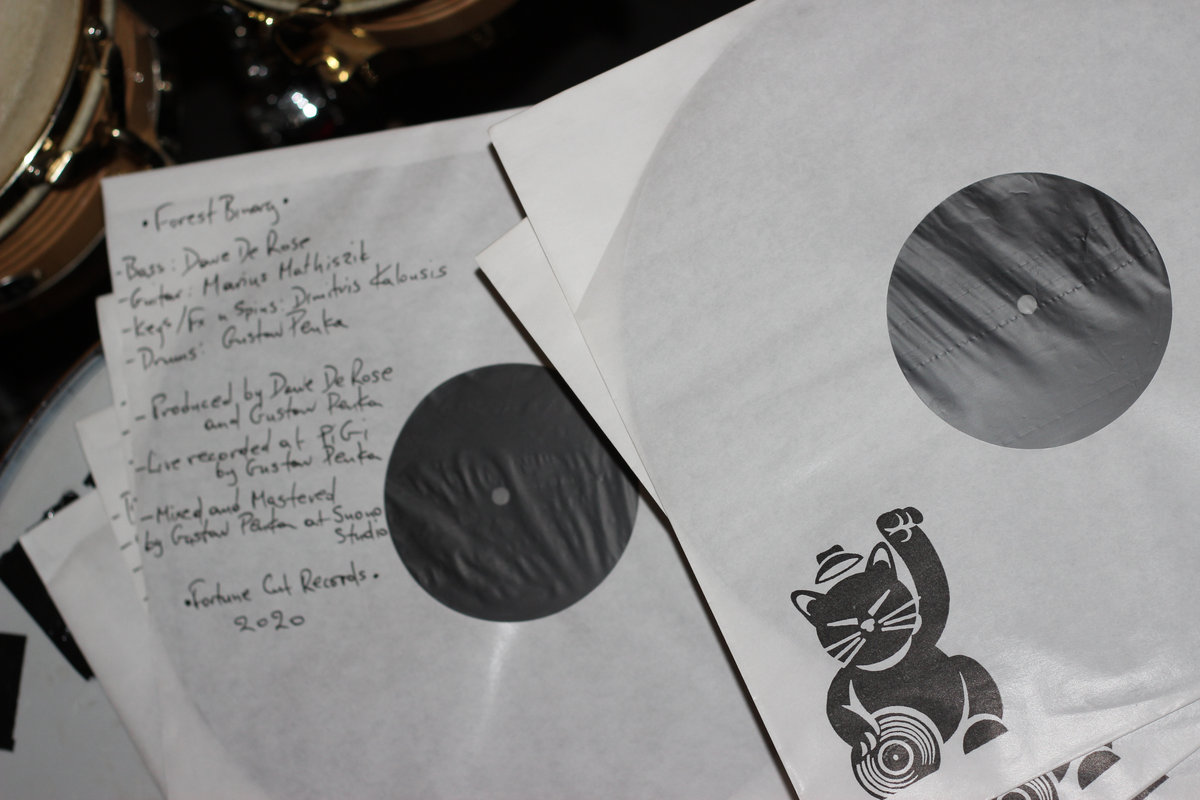 • Forest Binary •
- Bass: Dawe De Rose
- Guitar: Marius Mathiszik
- Keys/Fx n Spins: Dimitris Kalousis
- Drums: Gustaw Penka
- Produced by Dawe De Rose
and Gustaw Penka
- Live recorded at PiGi
by Gustaw Penka
- Mixed and Mastered
by Gustaw Penka at Suono
Studio
• Fortune Cut Records •
2020